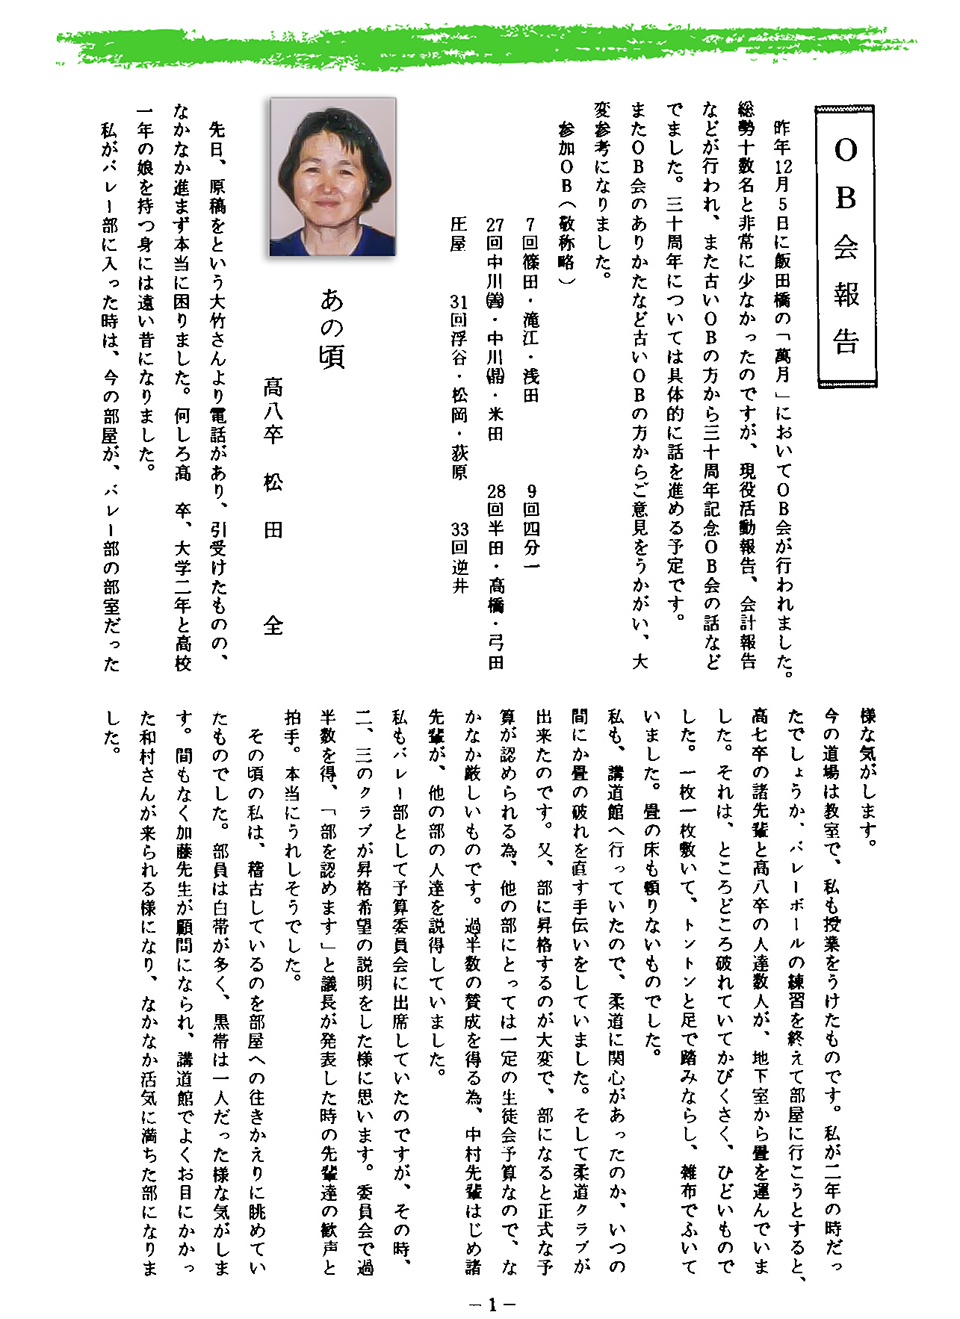 OB会報告
昨年12月5日に飯田橋の「萬月」においてOB会が行われました。
総勢十数名と非常に少なかったのですが、現役活動報告、会計報告
などが行われ、また古いOBの方から三十周年記念OB会の話など
でました。三十周年については具体的に話を進める予定です。
またOB会のありかたなど古いOBの方からご意見をうかがい、大
変参考になりました。
参加OB(敬称略)
7回篠田・滝江・浅田 9回四分一
27回中川(善)・中川(晶)・米田 28回半田・高橋・弓田
圧屋 31回浮谷・松岡・萩原 33回逆井
あの頃
高八卒 松田 全
先日、原稿をという大竹さんより電話があり、引受けたものの、
なかなか進まず本当に困りました。何しろ高 卒、大学二年と高校
一年の娘を持つ身には遠い昔になりました。
私がバレー部に入った時は、今の部屋が、バレー部の部室だった
様な気がします。
今の道場は教室で、私も授業をうけたものです。私が二年の時だっ
たでしょうか、バレーボールの練習を終えて部屋に行こうとすると、
高七卒の諸先輩と高八卒の人達数人が、地下室から畳を運んでいま
した。それは、ところどころ破れていてかびくさく、ひどいもので
した。一枚一枚敷いて、トントンと足で踏みならし、雑布でふいて
いました。畳の床も頼りないものでした。
私も、講道館へ行っていたので、柔道に関心があったのか、いつの
間にか畳の破れを直す手伝いをしていました。そして柔道クラブが
出来たのです。又、部に昇格するのが大変で、部になると正式な予
算が認められる為、他の部にとっては一定の生徒会予算なので、な
かなか厳しいものです。過半数の賛成を得る為、中村先輩はじめ諸
先輩が、他の部の人達を説得していました。
私もバレー部として予算委員会に出席していたのですが、その時、
二、三のクラブが昇格希望の説明をした様に思います。委員会で過
半数を得、「部を認めます」と議長が発表した時の先輩達の歓声と
拍手。本当にうれしそうでした。
その頃の私は、稽古しているのを部屋への往きかえりに眺めてい
たものでした。部員は白帯が多く、黒帯は一人だった様な気がしま
す。間もなく加藤先生が顧問になられ、講道館でよくお目にかかっ
た和村さんが来られる様になり、なかなか活気に満ちた部になりま
した。
－1－